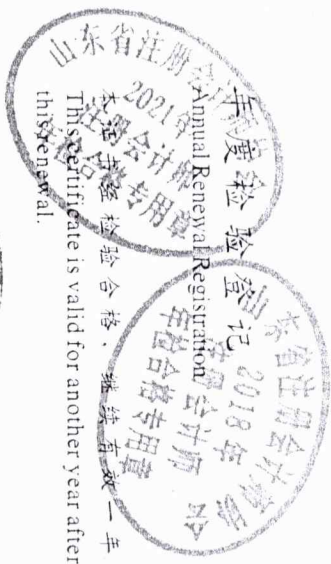 年度检验登记
Annual Renewal Registration
本证书经检验合格，继续有效一年
This certificate is valid for another year after
this renewal.
山东省注册会计师协会
2021年
注册会计师
年检合格专用章
山东省注册会计师协会
2018年
注册会计师
年检合格专用章